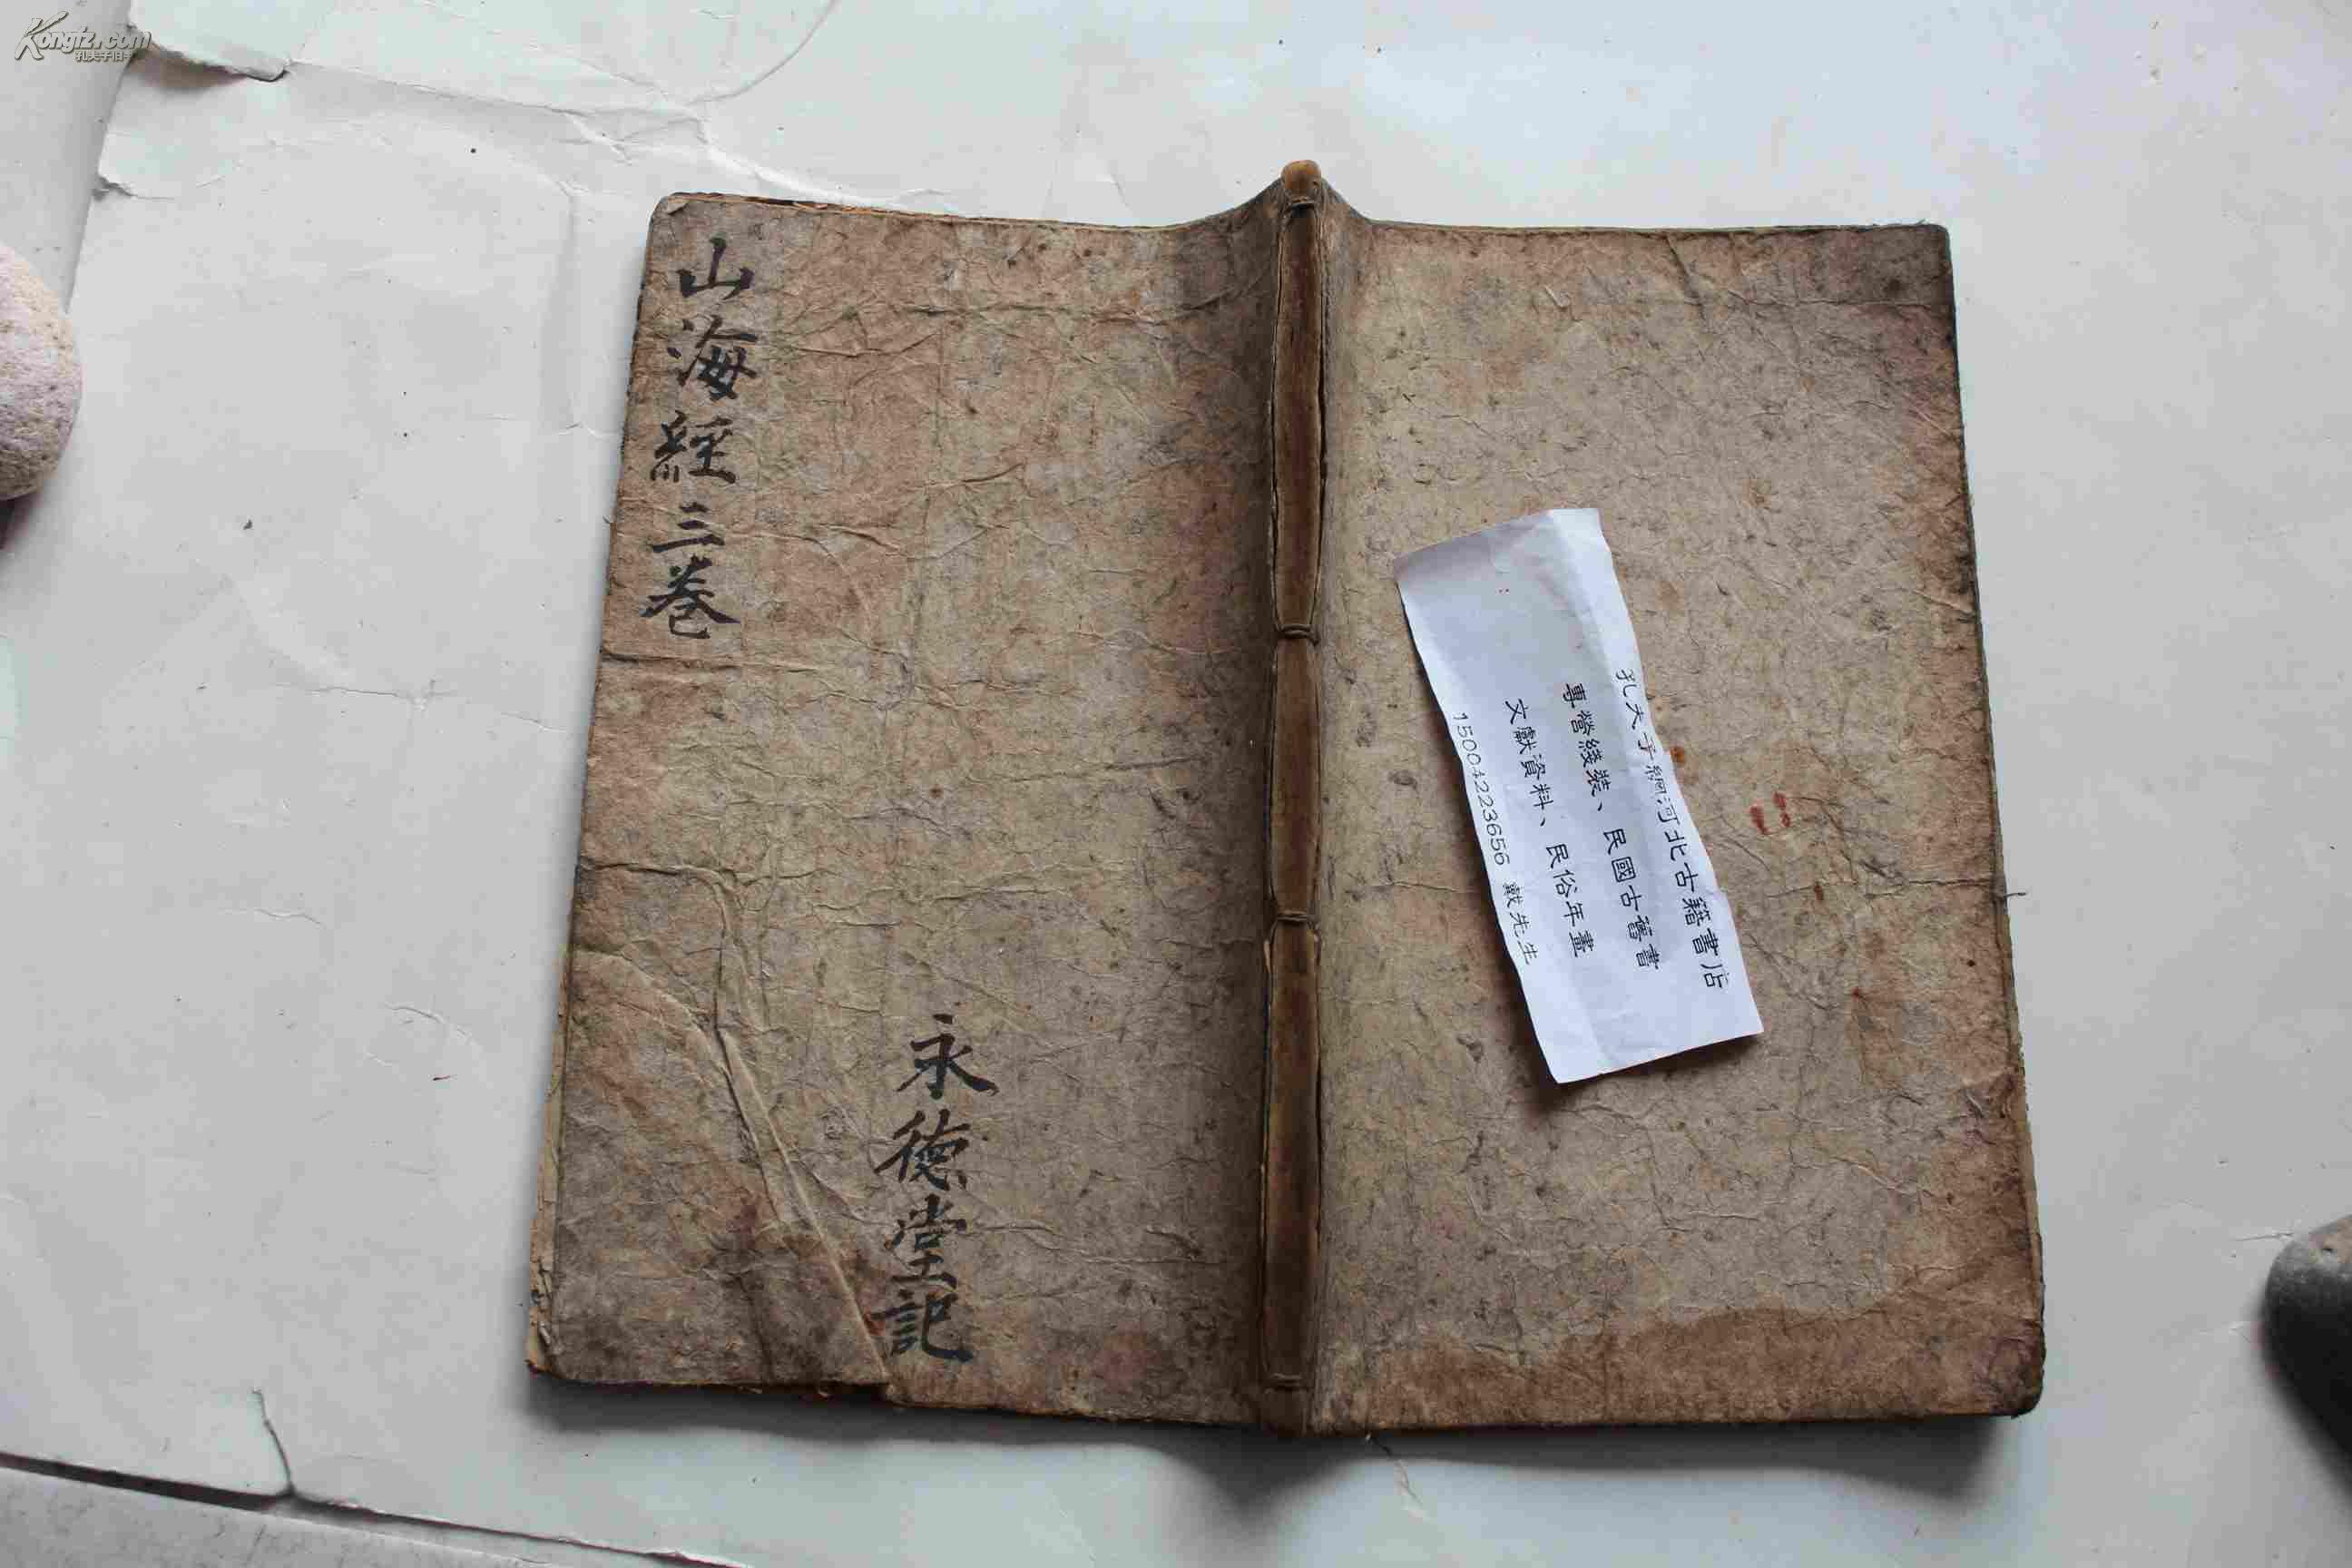 Kongfz.com
孔夫子旧书
山海經三巻
永德堂記
孔夫子網河北古籍書店
專營綫裝、民國古舊書
文獻資料、民俗年畫
15004223656 戴先生